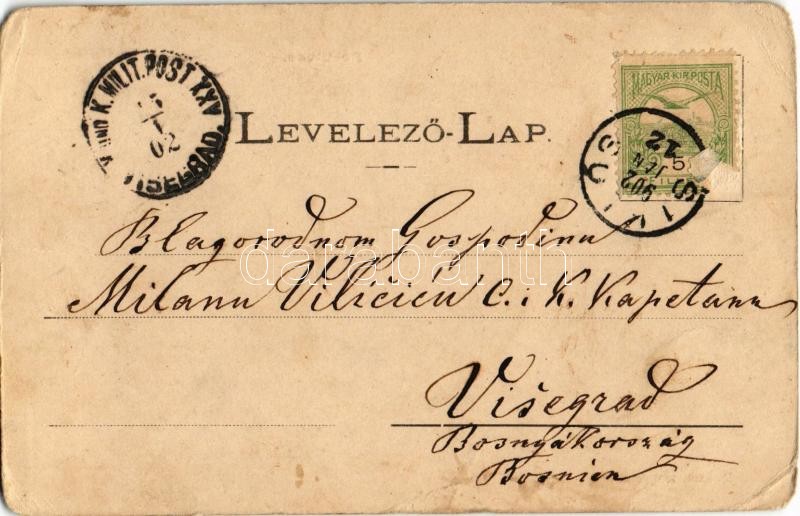 K. UND K. MILIT. POST XXV
I
02
VISEGRAD.
LEVELEZŐ-LAP.
MAGYAR KIR. POSTA
5
902
JAN
12
Blagorodnom Gospodinu
Milanu Viličiću C. i K. Kapetanu
Višegrad
Bosnyákország
Bosnien
darabanth